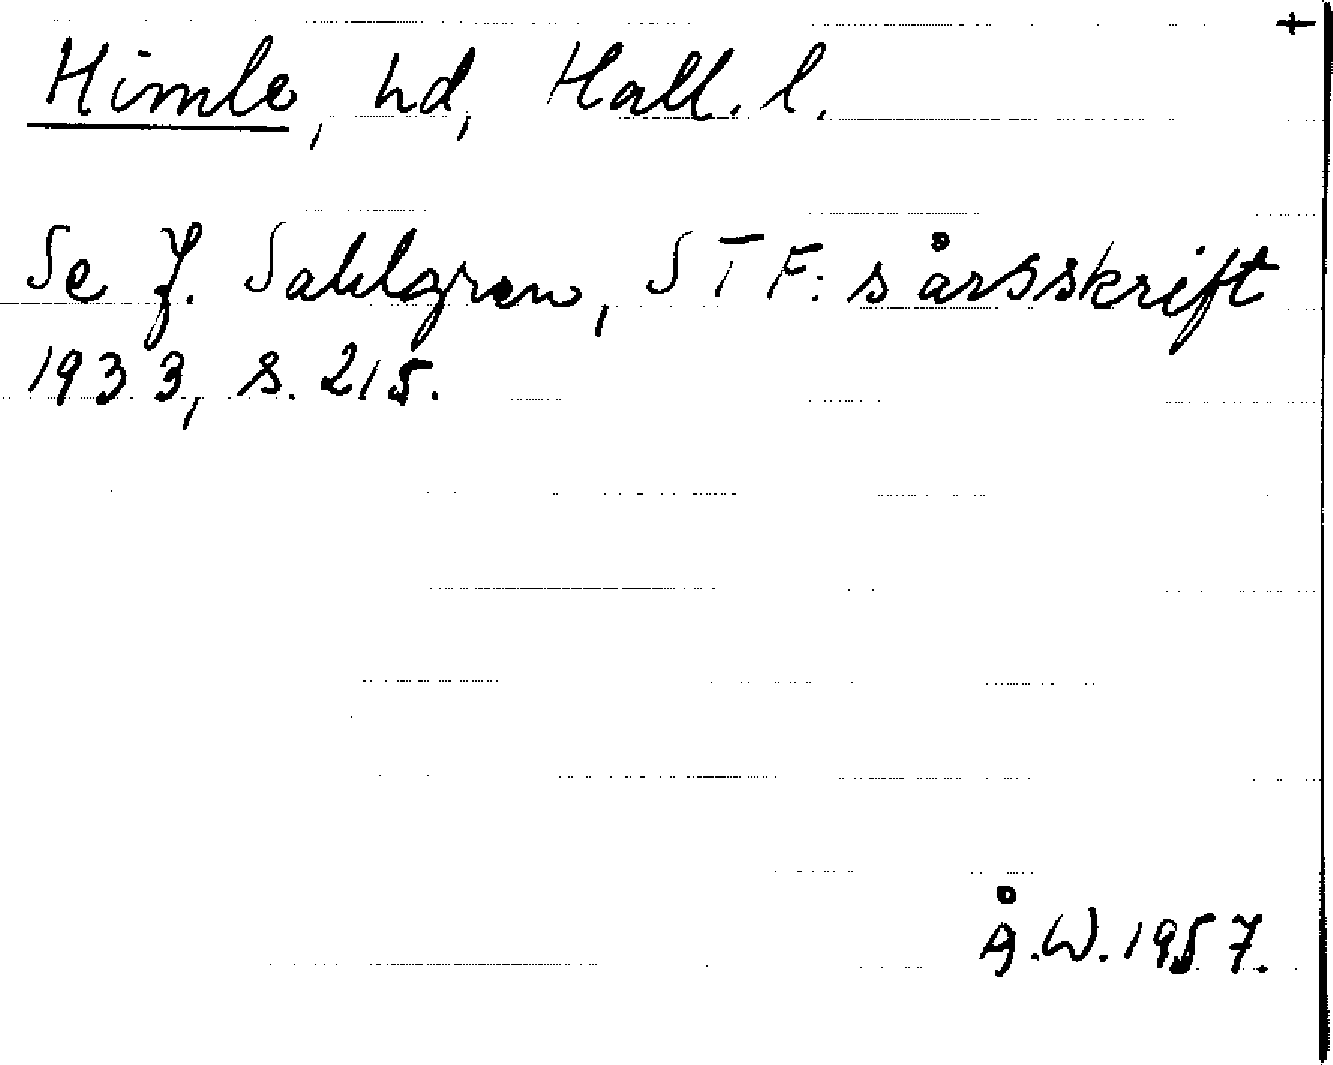 +
Himle, hd, Hall. l.
Se J. Sahlgren, STF:s årsskrift
1933, s. 215.
Å.W. 1957.